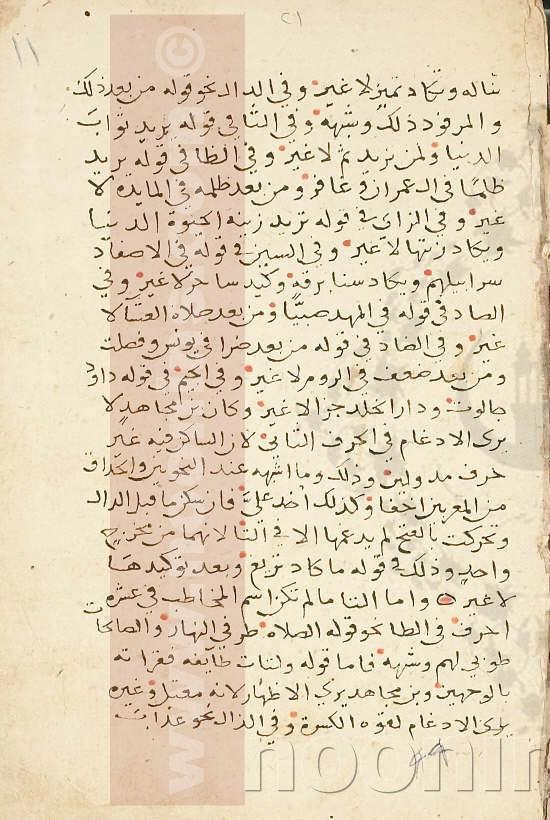 ٢١
١١
تناله وتكاد تميز لا غير وفي الدال نحو قوله من بعد ذلك
والمرفود ذلك وشبهه وفي الثا في قوله يريد ثواب
الدنيا ولمن نريد ثم لا غير وفي الظا في قوله يريد
ظلمًا في ال عمران وغافر ومن بعد ظلمه في المايده لا
غير وفي الزاي في قوله تريد زينه الحيوة الدنيا
ويكاد زيتها لا غير وفي السين في قوله في الاصفاد
سرابيلهم ويكاد سنا برقه وكيد ساحر لا غير وفي
الصاد في قوله في المهد صبيًّا ومن بعد صلاه العشا لا
غير وفي الضاد في قوله من بعد ضرا في يونس وفصلت
ومن بعد ضعف في الروم لا غير وفي الجيم في قوله داود
جالوت ودار الخلد جزا لا غير وكان بن مجاهد لا
يرى الادغام في الحرف الثاني لان الساكن فيه غير
حرف مد ولين وذلك وما اشبهه عند النحويين والحذاق
من المقريين اخفا وكذلك أخذ عليَّ فان سكن ما قبل الدال
وتحركت بالفتح لم يدغمها الا في التا لانهما من مخرج
واحد وذلك في قوله ما كاد تزيغ وبعد توكيدها
لا غير واما التا ما لم تكن اسم المخاطب في عشره
احرف في الطا نحو قوله الصلاه طرفي النهار والصالحات
طوبى لهم وشبهه فاما قوله ولتات طايفه فقراته
بالوجهين وبن مجاهد يرى الاظهار لانه معتل وغيره
يرى الادغام لقوه الكسرة وفي الذال نحو عذاب
www.
noonin